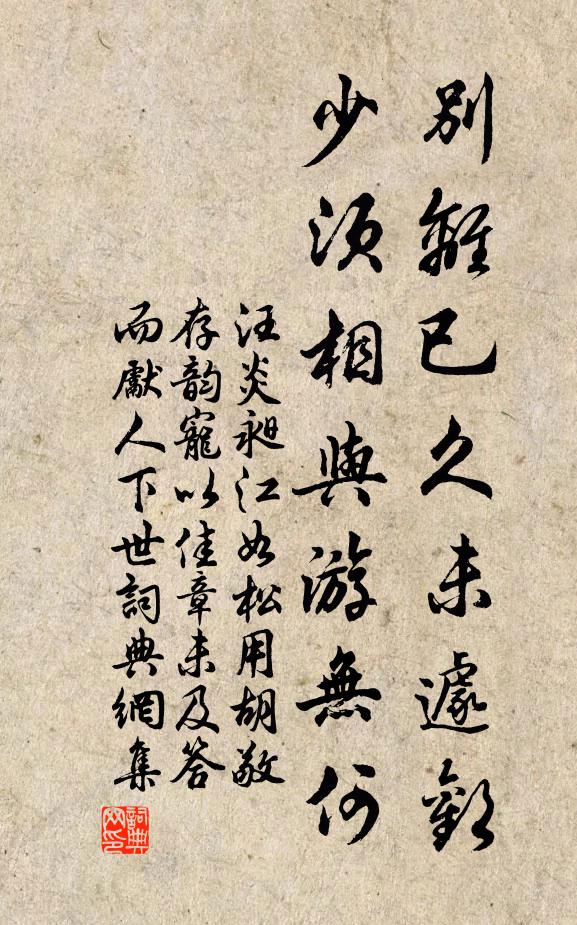 別離已久未遽歡
少須相與游無何
汪炎昶江如松用胡敬
存韵寵以佳章未及答
而獻人下世詞典網集
詞典
网印